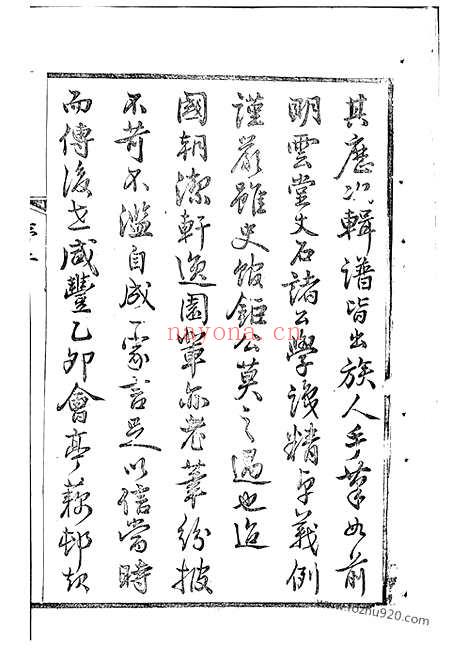 其歷次輯譜皆出族人手筆如前
明雲堂丈石諸公學識精卓義例
謹嚴雖史館鉅公莫之過也迨
國朝潔軒逸園輩亦老筆紛披
不苛不濫自成一家言足以信當時
而傳後世咸豐乙卯會亭邨
nayona.cn
www.fozhu920.com